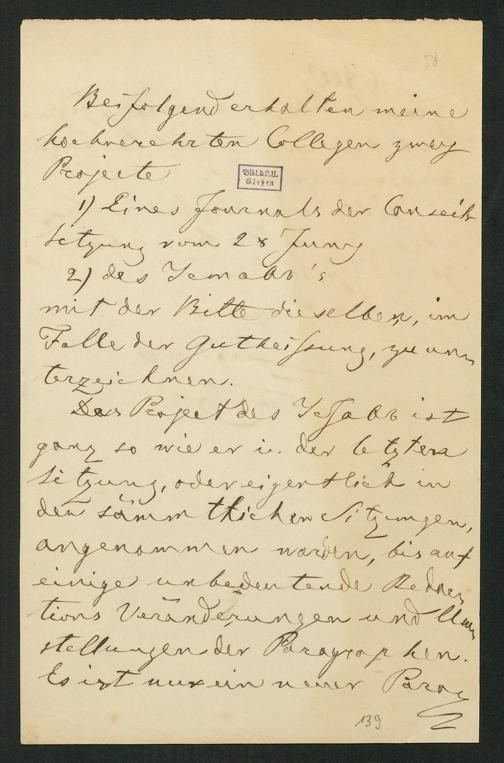 58
Beifolgend erhalten meine
hochverehrten Collegen zwey
Projecte
Bibl. d. L. U.
Giessen
1) Eines Journals der Conseils
sitzung vom 28 Juny
2) des
mit der Bitte dieselben, im
Falle der Gutheissung, zu un
terzeichnen.
Das Project des ist
ganz so wie er i. der letzten
Sitzung, oder eigentlich in
den sämmtlichen Sitzungen,
angenommen worden, bis auf
einige unbedeutende Redac
tions Veränderungen und Um
stellungen der Paragraphen.
Es ist nur ein neuer Parag
139